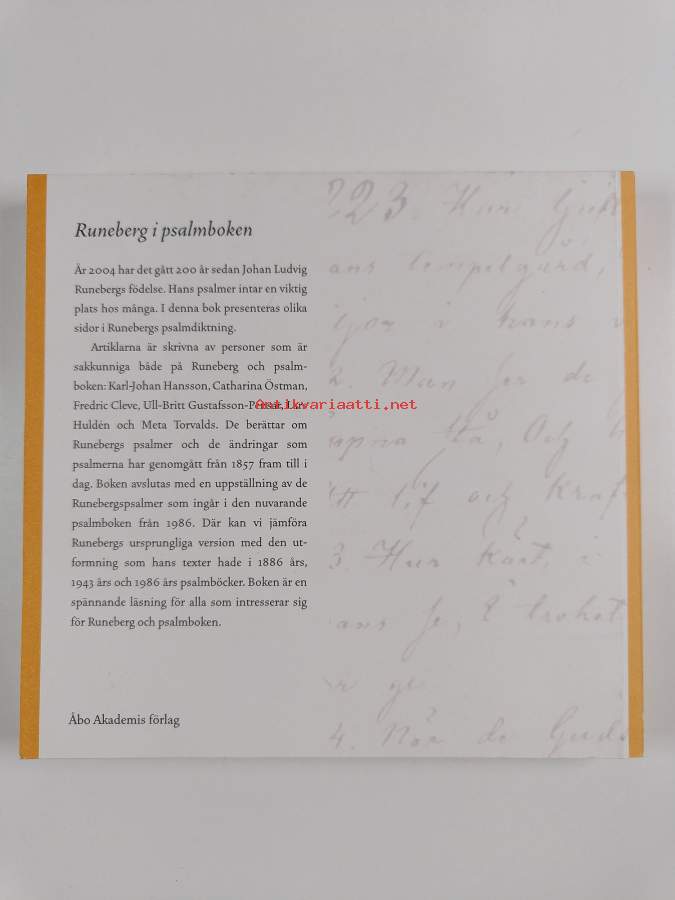 Runeberg i psalmboken
År 2004 har det gått 200 år sedan Johan Ludvig
Runebergs födelse. Hans psalmer intar en viktig
plats hos många. I denna bok presenteras olika
sidor i Runebergs psalmdiktning.
Artiklarna är skrivna av personer som är
sakkunniga både på Runeberg och psalm-
boken: Karl-Johan Hansson, Catharina Östman,
Fredric Cleve, Ull-Britt Gustafsson-Pensar, Lars
Huldén och Meta Torvalds. De berättar om
Runebergs psalmer och de ändringar som
psalmerna har genomgått från 1857 fram till i
dag. Boken avslutas med en uppställning av de
Runebergspsalmer som ingår i den nuvarande
psalmboken från 1986. Där kan vi jämföra
Runebergs ursprungliga version med den ut-
formning som hans texter hade i 1886 års,
1943 års och 1986 års psalmböcker. Boken är en
spännande läsning för alla som intresserar sig
för Runeberg och psalmboken.
Åbo Akademis förlag
Antikvariaatti.net
223. Hur
ans tempelgård,
i hans
2. Man ser de
stå, Och
lif och kraft
3. Hur
trohet
ge
4. När de